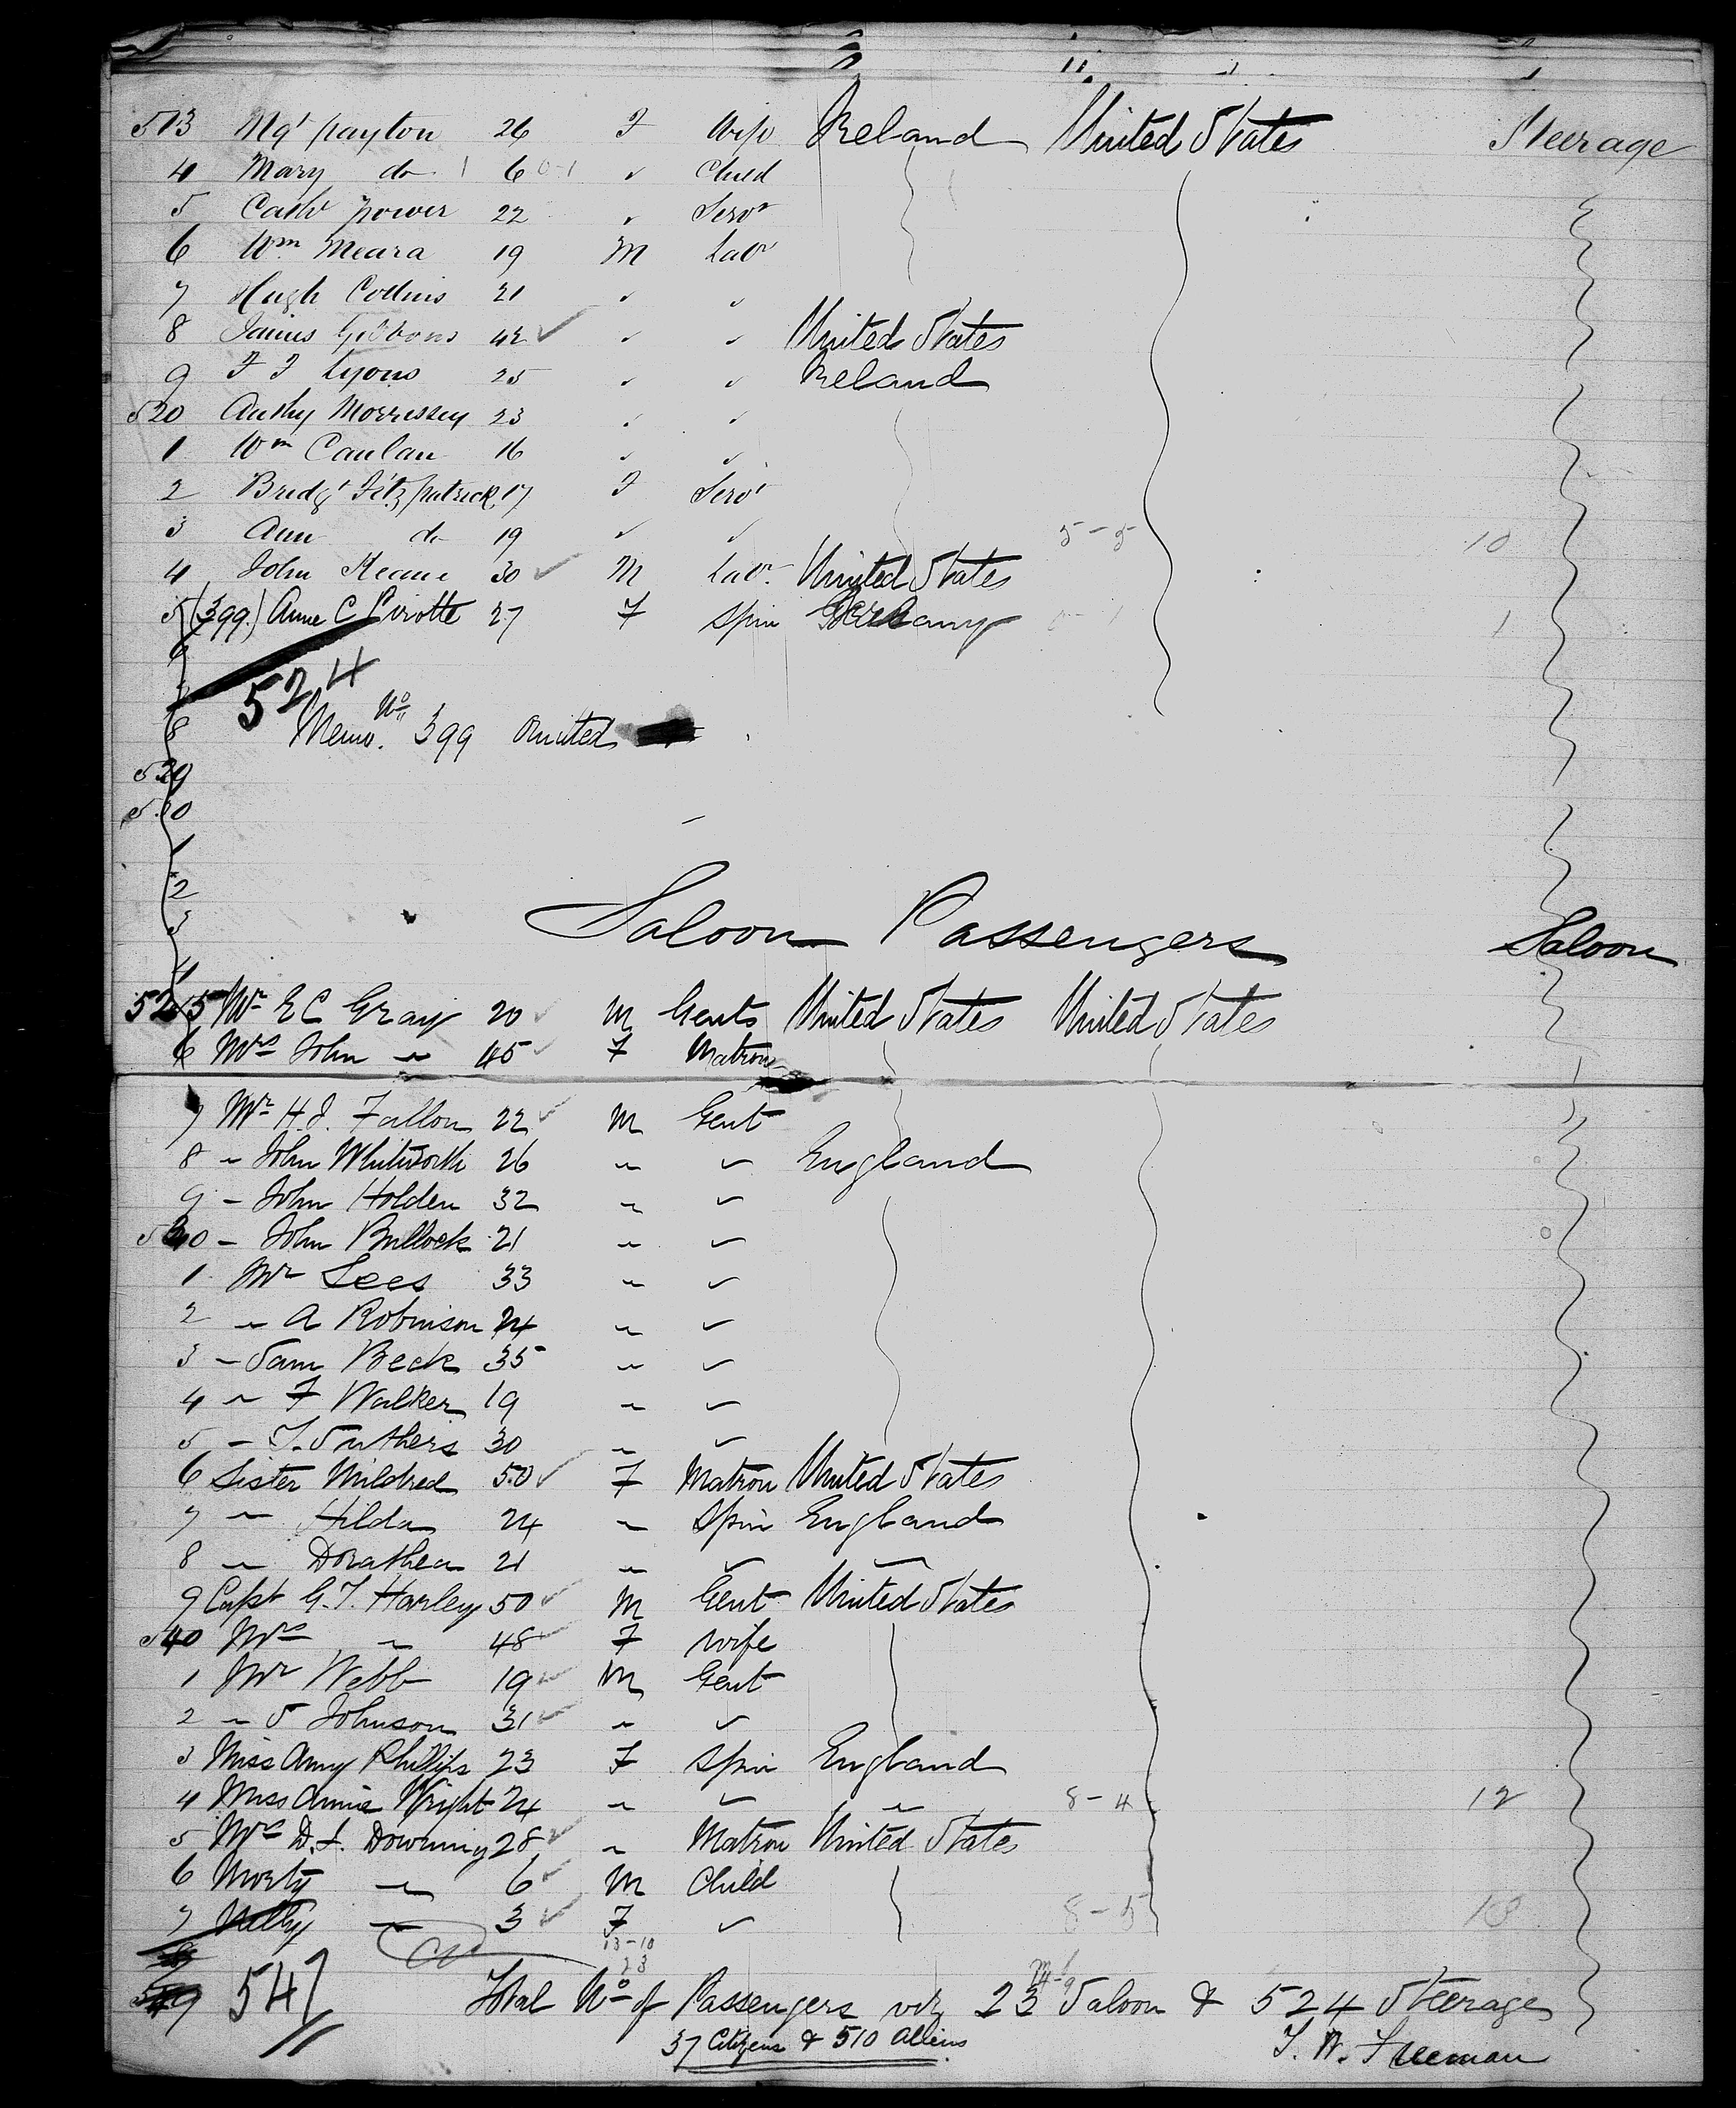 513 Mgt payton 26 F Wife Ireland United States Steerage
4 Mary do 6 " Child
5 Cath power 22 " Servt
6 Wm Meara 19 M Labr
7 Hugh Collins 21 " "
8 James Gibbons 42 ✓ " " United States
9 F F Lyons 25 " " Ireland
520 Anthy Morrissey 23 " "
1 Wm Caulan 16 " "
2 Bridgt Fitzpatrick 17 F Servt
3 Ann do 19 " " 5-5 10
4 John Keane 30 ✓ M Labr United States
5 (399) Anne C Pirotte 27 F Spin Germany 0-1 1
6
7 524
8 Memo. No 399 Omited
529
530
1
2
3
Saloon Passengers Saloon
4
525 Mr E C Gray 20 ✓ M Gents United States United States
6 Mrs John " 45 ✓ F Matron
7 Mr H.J. Fallon 22 ✓ M Gent
8 " John Whitworth 26 " " England
9 " John Holden 32 " "
530 " John Bullock 21 " "
1 Mr Lees 33 " "
2 " A Robinson 24 " "
3 " Sam Beck 35 " "
4 " F Walker 19 " "
5 " T. Suthers 30 " "
6 Sister Mildred 50 ✓ F Matron United States
7 " Hilda 24 " Spin England
8 " Dorathea 21 " " "
9 Capt G.T. Harley 50 ✓ M Gent United States
540 Mrs " 48 ✓ F Wife
1 Mr Webb 19 ✓ M Gent
2 " S Johnson 31 ✓ " "
3 Miss Amy Phillips 23 F Spin England
4 Miss Annie Wright 24 " " " 8-4 12
5 Mrs D.F. Downing 28 ✓ " Matron United States
6 Morty " 6 ✓ M Child
7 Nelly " 3 ✓ F " 8-5 13
13-10
23
547 Total No of Passengers viz 23 Saloon & 524 Steerage
37 Citizens & 510 Aliens
T. W. Freeman